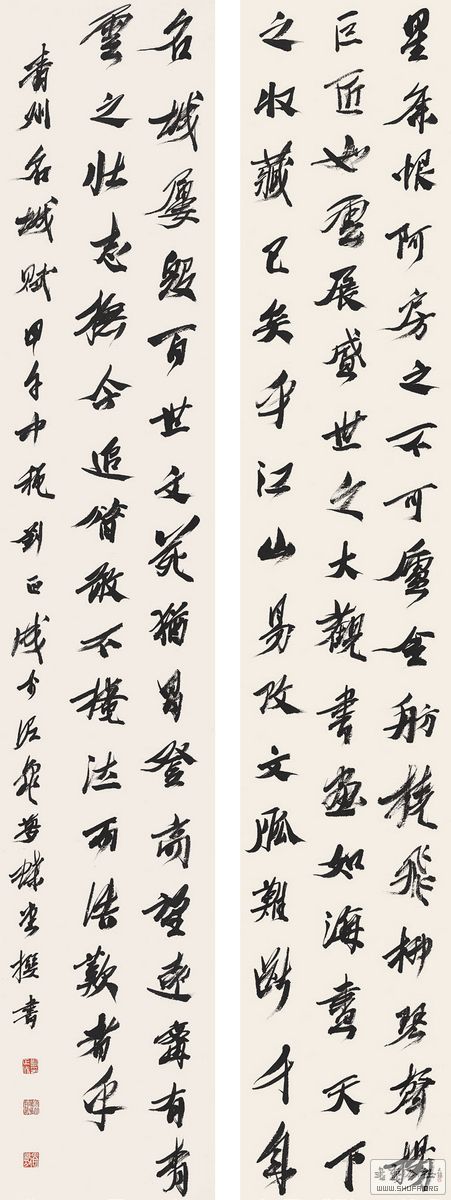 星恨阿房之不可舫橈飛柳琴聲揚
巨匠也雲展盛世之大觀書畫如海盡天下
之收藏已矣乎江山易改文脈難斷千年
名城屢毀百世文苑猶昌登高望遠甯有青
雲之壯志撫今追昔敢不而浩歎者乎
青州名城賦甲午中秋劉正成堂撰書
WWW.SHUFA.ORG